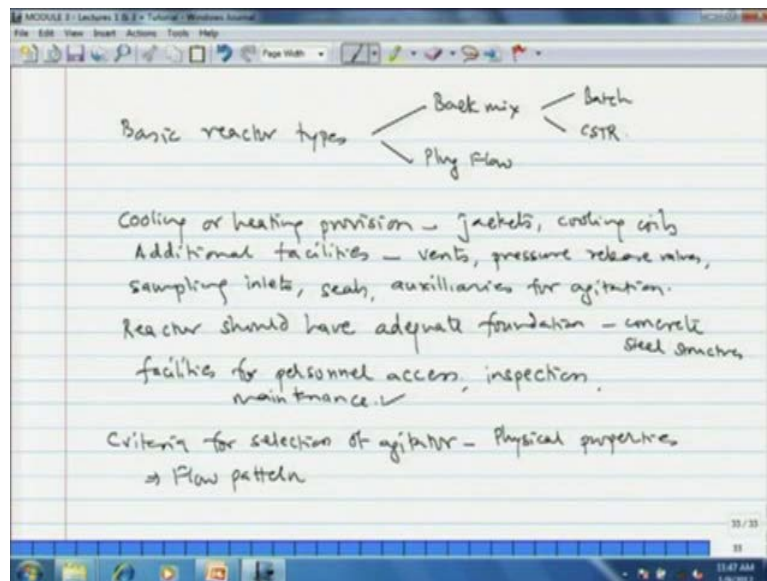 MODULE 3 - Lectures 1 & 2 + Tutorial - Windows Journal
File Edit View Insert Actions Tools Help
Page Width
Back mix
Batch
Basic reactor types
CSTR.
Plug Flow
Cooling or heating provision - jackets, cooling coils
Additional facilities - vents, pressure release valves,
sampling inlets, seals, auxilliaries for agitation.
Reactor should have adequate foundation - concrete
steel structures
facilities for personnel access, inspection,
maintenance.
Criteria for selection of agitator - Physical properties
⇒ Flow pattern
33 / 33
33
11:47 AM